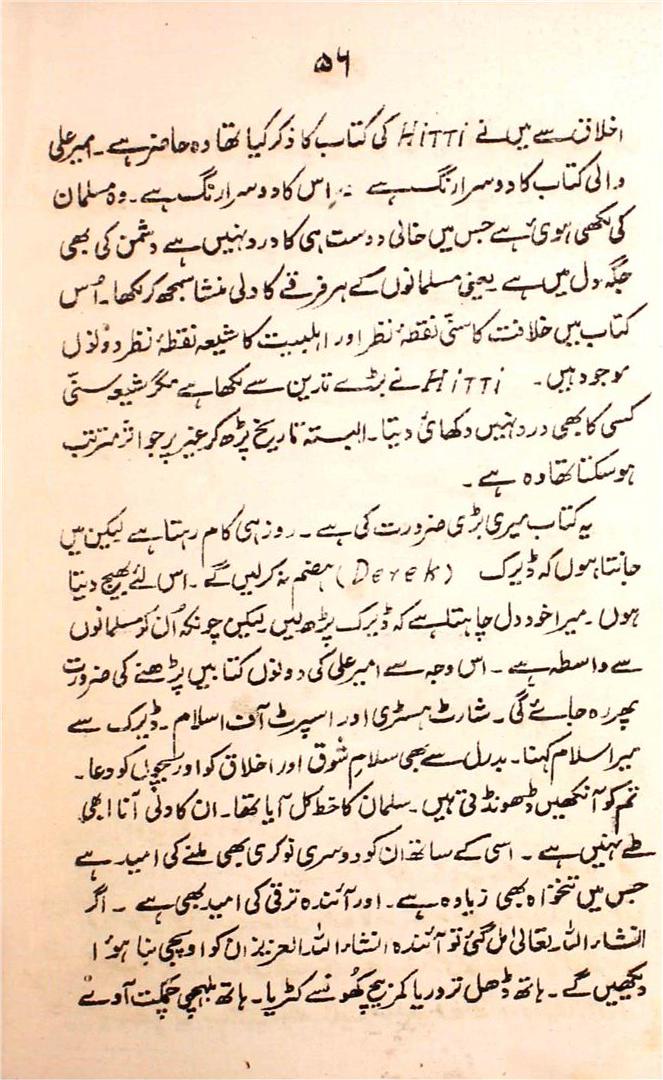 ۵۶
اخلاق سے میں نے HITTI کی کتاب کا ذکر کیا تھا وہ حاضر ہے ۔ امیر علی
والی کتاب کا دوسرا رنگ ہے ۔ اس کا دوسرا رنگ ہے ۔ وہ مسلمان
کی لکھی ہوئی ہے جس میں خالی دوست ہی کا درد نہیں ہے دشمن کی بھی
جگہ دل میں ہے یعنی مسلمانوں کے ہر فرقے کا دلی منشا سمجھ کر لکھا ۔ اُس
کتاب میں خلافت کا سنّی نقطۂ نظر اور اہلبیت کا شیعہ نقطۂ نظر دونوں
موجود ہیں ۔ HITTI نے بڑے قرین سے لکھا ہے مگر شیعہ سنّی
کسی کا بھی درد نہیں دکھائی دیتا ۔ البستہ تاریخ پڑھ کر غیر پر جو اثر مترتب
ہو سکتا تھا وہ ہے ۔
یہ کتاب میری بڑی ضرورت کی ہے ۔ روز ہی کام رہتا ہے لیکن میں
جانتا ہوں کہ ڈیرک (Derek) ہضم نہ کر لیں گے ۔ اس لئے بھیج دیتا
ہوں ۔ میرا خود دل چاہتا ہے کہ ڈیرک پڑھ لیں لیکن چونکہ اُن کو مسلمانوں
سے واسطہ ہے ۔ اس وجہ سے امیر علی کی دونوں کتابیں پڑھنے کی ضرورت
پھر رہ جائے گی ۔ شارٹ ہسٹری اور اسپرٹ آف اسلام ۔ ڈیرک سے
میرا سلام کہنا ۔ بدرل سے بھی سلام شوق اور اخلاق کو اور بچوں کو دعا ۔
تم کو آنکھیں ڈھونڈتی ہیں ۔ سلمان کا خط کل آیا تھا ۔ ان کا دلی آنا ابھی
طے نہیں ہے ۔ اسی کے ساتھ ان کو دوسری نوکری بھی ملنے کی امید ہے
جس میں تنخواہ بھی زیادہ ہے ۔ اور آئندہ ترقی کی امید بھی ہے ۔ اگر
انشاء اللہ تعالیٰ مل گئی تو آئندہ انشاء اللہ العزیز ان کو اوپچی بنا ہوا
دیکھیں گے ۔ ہاتھ ڈھل تردریا کمر بیچ کھونسے کٹریا ۔ ہاتھ چمکت آوے